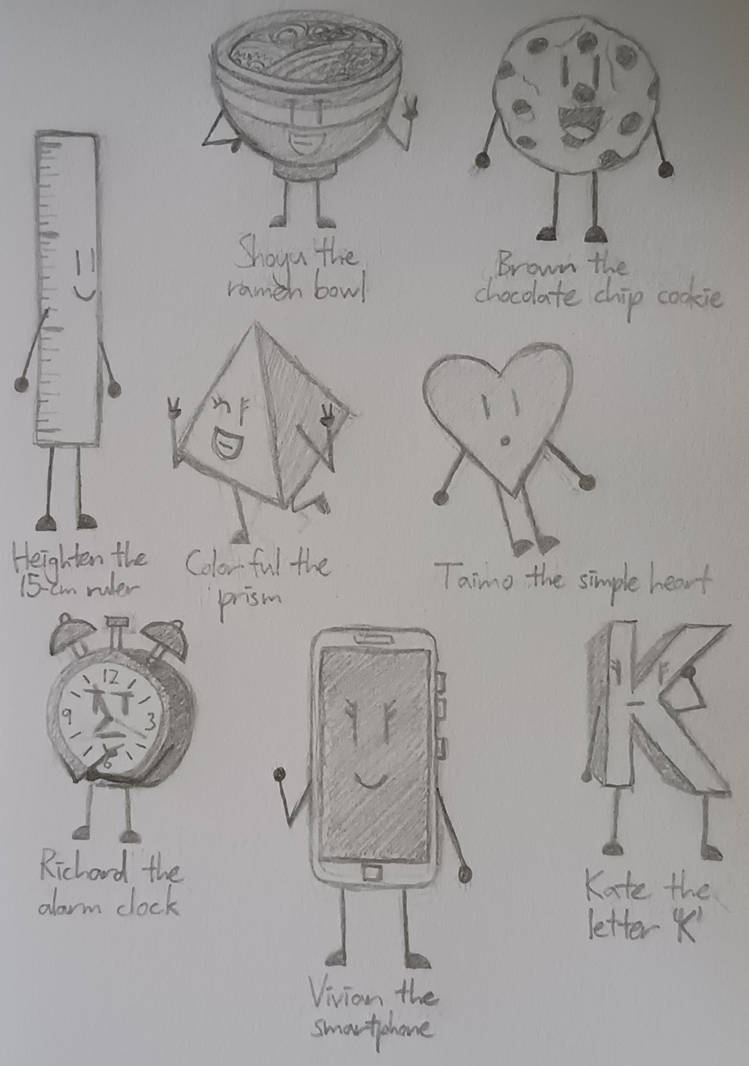 Shoyu the
ramen bowl
Brown the
chocolate chip cookie
Heighten the
15-cm ruler
Colorful the
prism
Taimo the simple heart
12
9
3
6
Richard the
alarm clock
Vivian the
smartphone
K
Kate the
letter 'K'